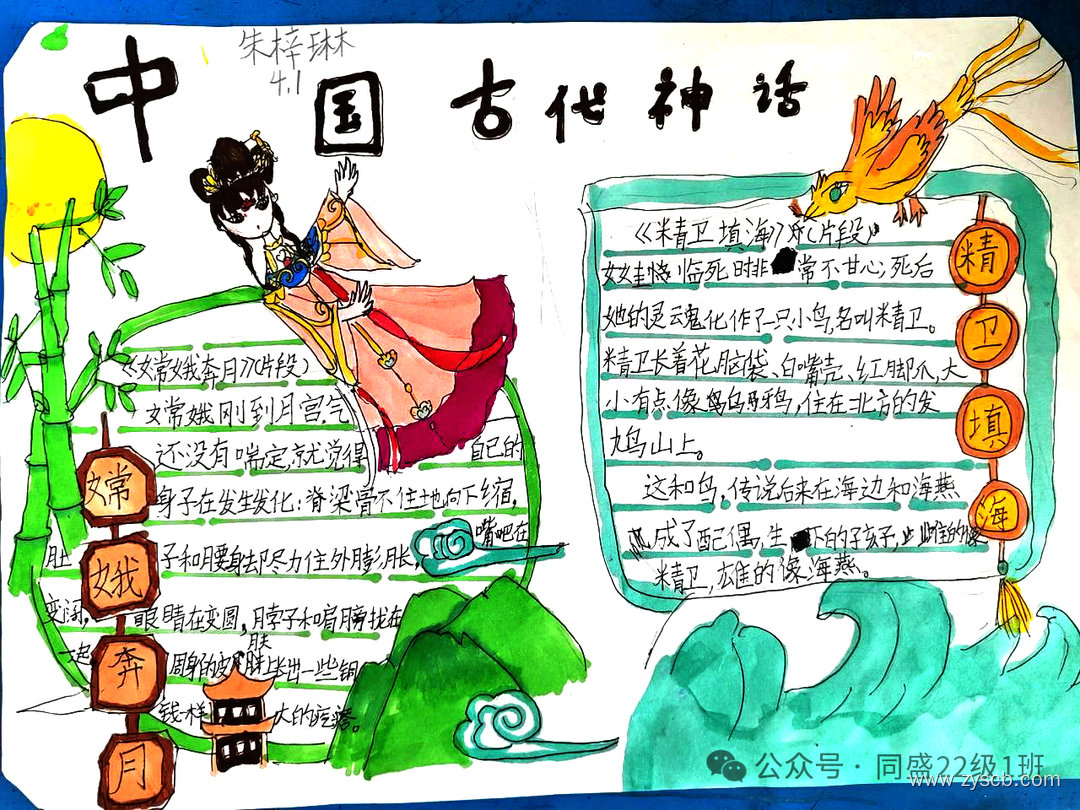 朱梓琳
4.1
中国古代神话
《嫦娥奔月》(片段)
嫦娥刚到月宫,气
还没有喘定,就觉得自己的
身子在发生变化:脊梁骨不住地向下缩,
肚子和腰身却尽力往外膨胀,嘴吧在
变阔,眼睛在变圆,脖子和肩膀找在
一起,周身的皮肤上长出一些铜
钱样大的疙瘩。
嫦娥奔月
《精卫填海》(片段)
女娃临死时非常不甘心;死后
她的灵魂化作了一只小鸟,名叫精卫。
精卫长着花脑袋、白嘴壳、红脚爪,大
小有点像乌鸦,住在北方的发
鸠山上。
这和鸟,传说后来在海边和海燕
成了配偶,生下的孩子,
精卫,雄的像海燕。
精卫填海
公众号·同盛22级1班
www.zyscb.com